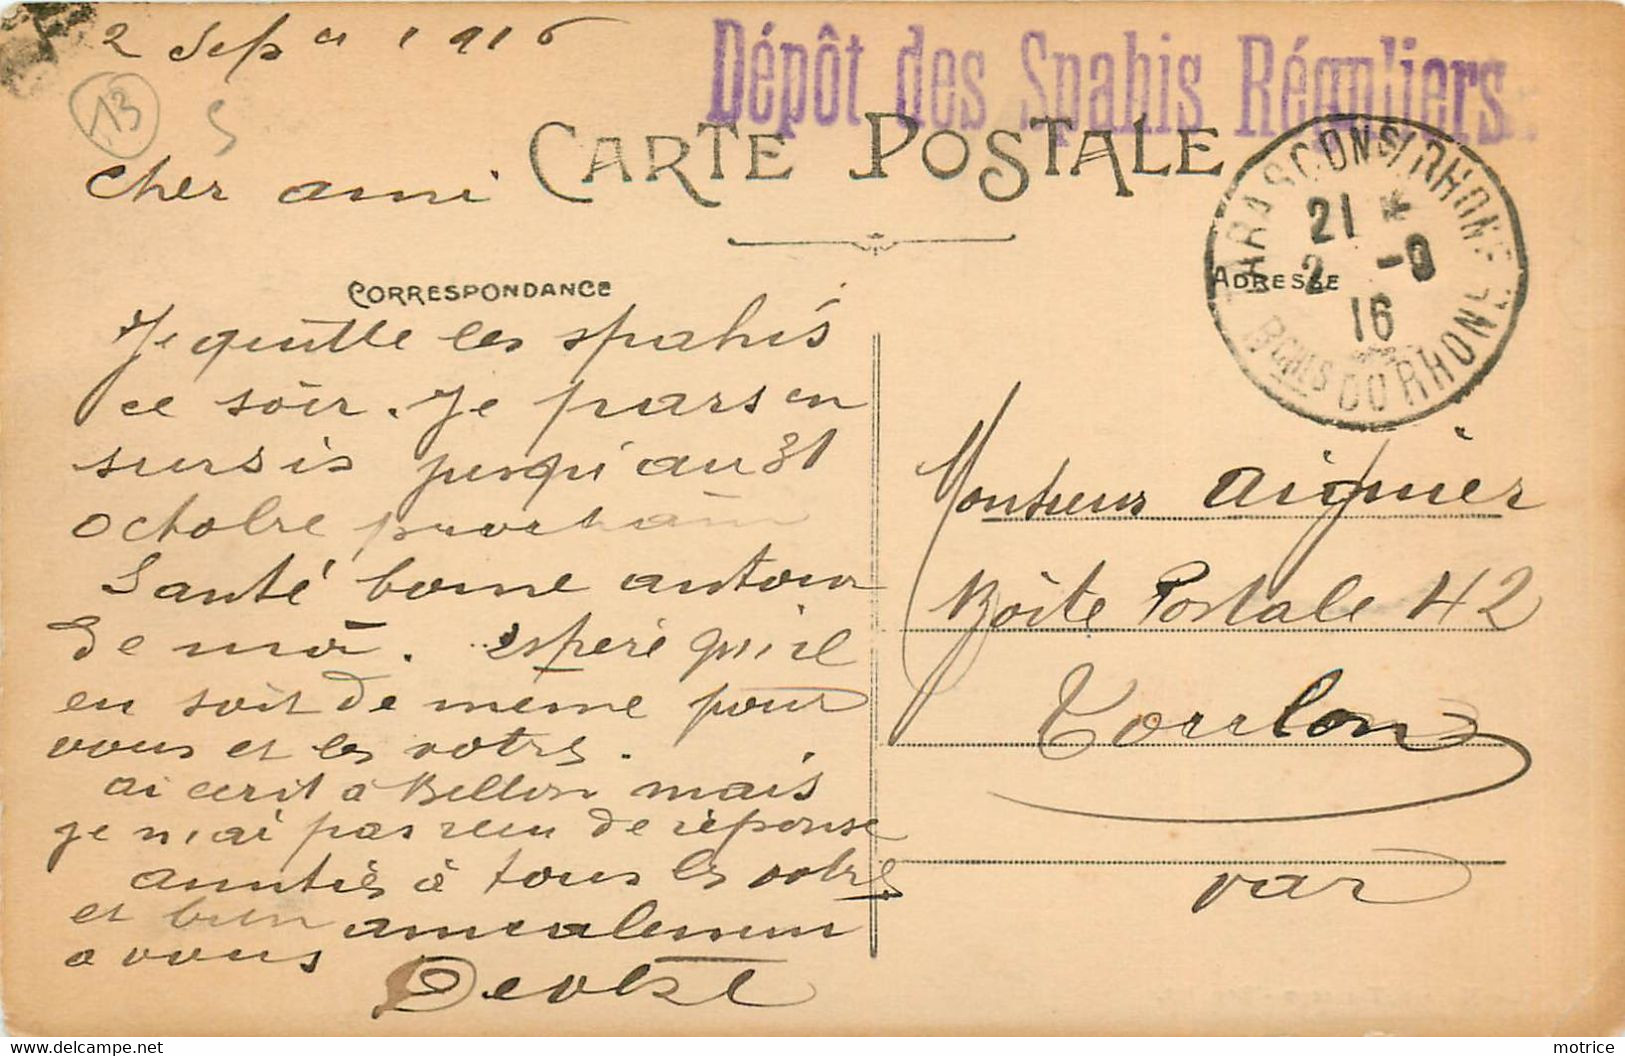 2 Sepbre 1916
Dépôt des Spahis Réguliers
13
5
CARTE POSTALE
Cher ami
TARASCON S/ RHONE
21 *
2 -9
16
BCHES DU RHONE
ADRESSE
CORRESPONDANCE
Je quitte les spahis
ce soir. Je pars en
sursis jusqu'au 31
octobre prochain
Santé bonne autour
de moi. espère qu'il
en soit de même pour
vous et les votres.
ai ecrit à Bellon mais
je n'ai pas reçu de réponse
amitiés à tous les votres
et bien amicalement
a vous
Monsieur Aiguier
Boîte Postale 42
Toulon
Var
motrice